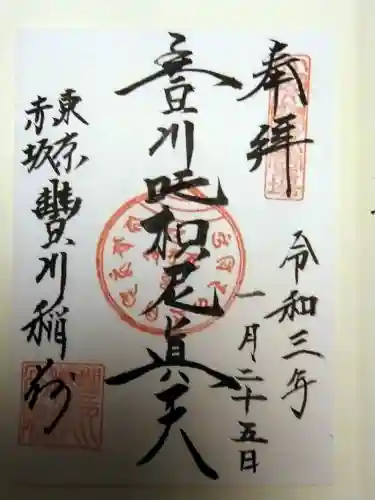 奉拝
令和三年
一月二十五日
豊川吒枳尼真天
東京
赤坂
豐川稲荷